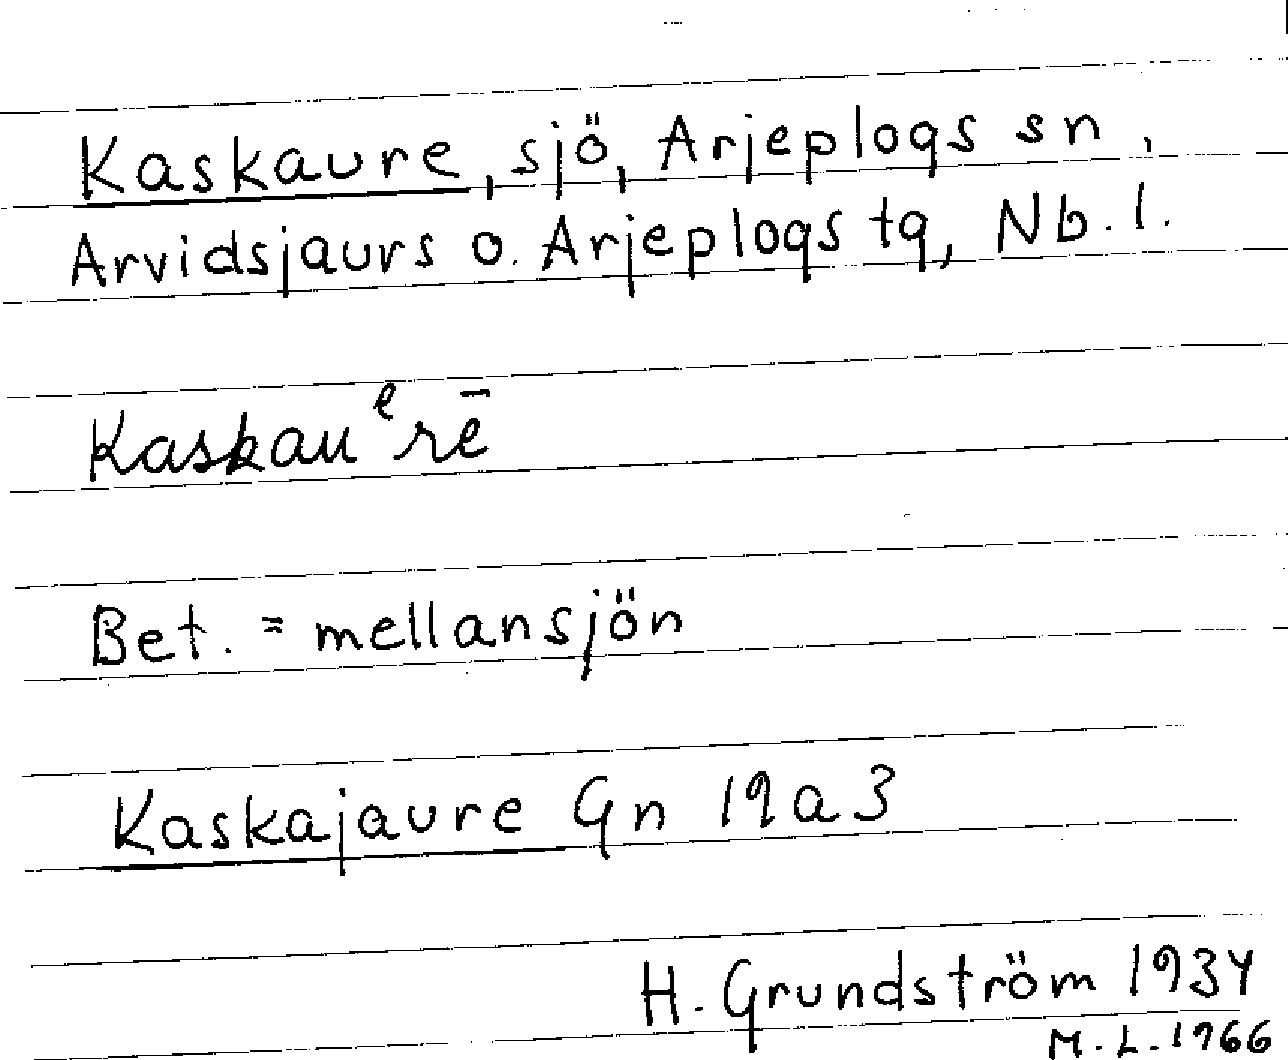 Kaskaure, sjö, Arjeplogs sn,
Arvidsjaurs o. Arjeplogs tg, Nb. l.
Kaskauᵉrē
Bet. = mellansjön
Kaskajaure Gn 19a3
H. Grundström 1934
M. L. 1966